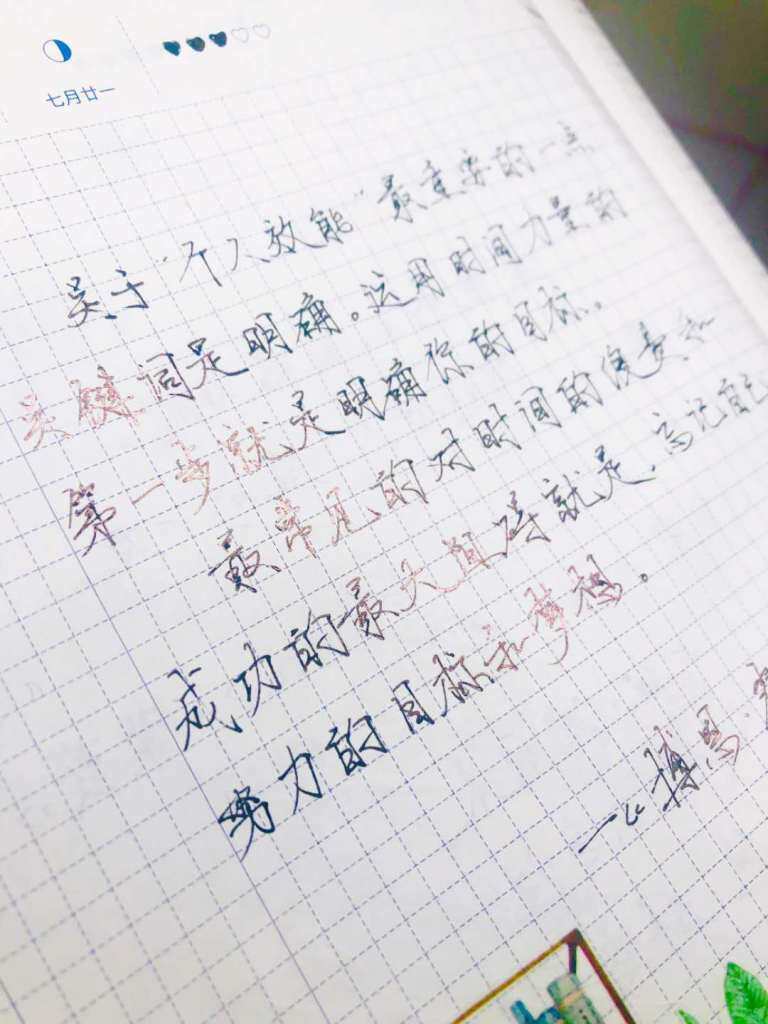 七月廿一
关于“个人效能”最重要的一点
关键词是明确。运用时间力量的
第一步就是明确你的目标。
最常见的对时间的浪费和
成功的最大阻碍就是,忘记自己
努力的目标和梦想。
——博恩·